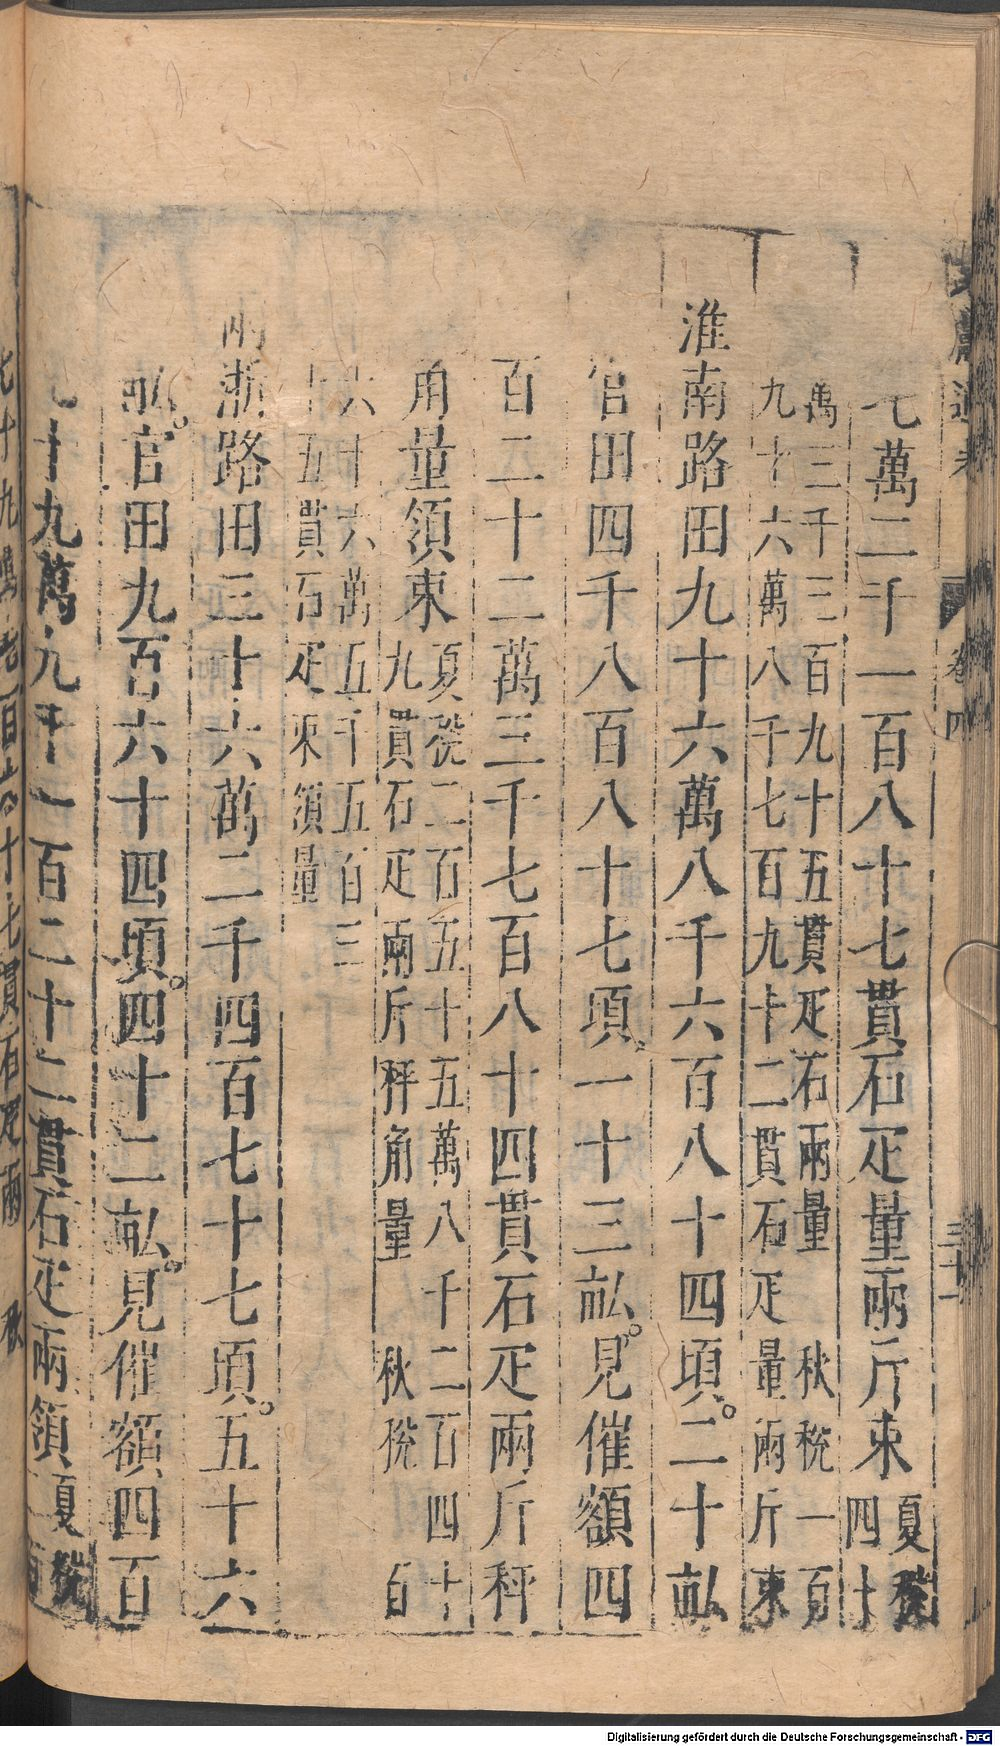 七萬二千一百八十七貫石疋量兩斤束夏稅四十
萬三千三百九十五貫疋石兩量 秋稅一百
九十六萬八千七百九十二貫石疋量兩斤束
淮南路田九十六萬八千六百八十四頃。二十畝
官田四千八百八十七頃一十三畝。見催額四
百二十二萬三千七百八十四貫石疋兩斤秤
角量領束夏稅二百五十五萬八千二百四十
九貫石疋兩斤秤角量 秋稅百
六十六萬五千五百三
十五貫石疋束領量
兩浙路田三十六萬二千四百七十七頃。五十六
畝。官田九百六十四頃。四十二畝。見催額四百
十九萬九千一百二十二貫石疋兩領夏稅
卷四
七十九萬七百六十七貫石疋兩 秋
Digitalisierung gefördert durch die Deutsche Forschungsgemeinschaft - DFG